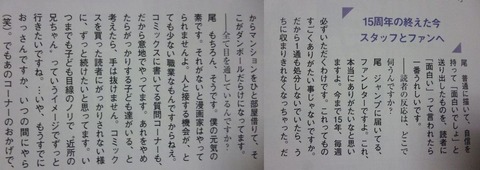 15周年の終えた今
スタッフとファンへ
尾 普通に描いて、自信を
持って「面白いでしょ」と
送り出したものを、読者に
「面白い」って言われたら
一番うれしいですね。
――読者の反応は、どこで
伺うんですか？
尾 ジャンプに届いてる、
ファンレターですよ。これ、
本当にありがたいなと思い
ますよ。今まで15年、毎週
必ずいただくわけです。これってもの
すごくありがたい事じゃないですか。
だから1通も処分しないでいたら、う
ちに収まりきれなくなっちゃった。だ
からマンションをひと部屋借りて、そ
こがダンボールだらけになってます。
――全て目を通しているんですか？
尾 もちろん、そうです。僕の元気の
素です。それがないと漫画家はやって
られませんよ。人と接する機会が、と
ても少ない職業なもんですからね。
コミックスに書いてる質問コーナーも、
だから意地でやってます。あれをやめ
たらがっかりする子ども達がいる、と
考えたら、手は抜けません。コミック
スを買った読者にがっかりされない様
に、ずっと続けたいと思ってます。い
つまでも子ども目線のノリで「近所の
兄ちゃん」っていうイメージでずっと
行きたいですね、…や、もうすでに
おっさんですが、いつの間にやら
（笑）。でもあのコーナーのおかげで、